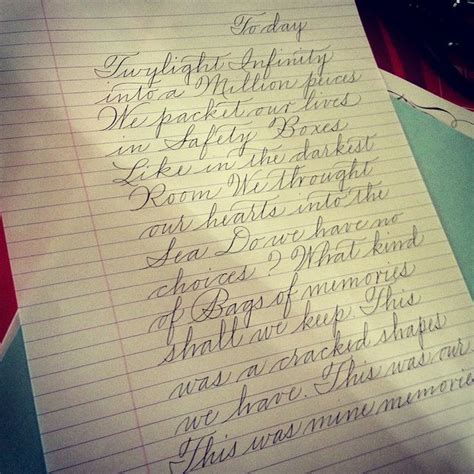 To day
Twylight Infinity
into a Million peices
We packet our lives
in Safety Boxes
Like in the darkest
Room We throught
our hearts into the
Sea Do we have no
choices ? What kind
of Bags of memories
shall we keep. This
was a cracked shapes
we have. This was our
This was mine memories